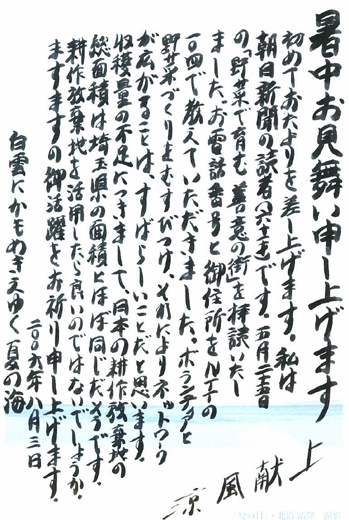 暑中お見舞い申し上げます
初めておたよりを差し上げます。私は
朝日新聞の読者(六十才)です。五月二十五日
の「野菜で育む善意の街」を拝読いたし
ました。お電話番号と御住所をNTTの
一〇四で教えていただきました。ボランティアと
野菜づくりをむすびつけ、それによりネットワーク
が広がることは、すばらしいことだと思います。
収穫量の不足につきまして、日本の耕作放棄地の
総面積は埼玉県の面積とほぼ同じだそうです。
耕作放棄地を活用したら良いのではないでしょうか。
ますますの御活躍をお祈り申し上げます。
二〇〇六年八月三日
白雲にかもめきえゆく夏の海
涼風献上